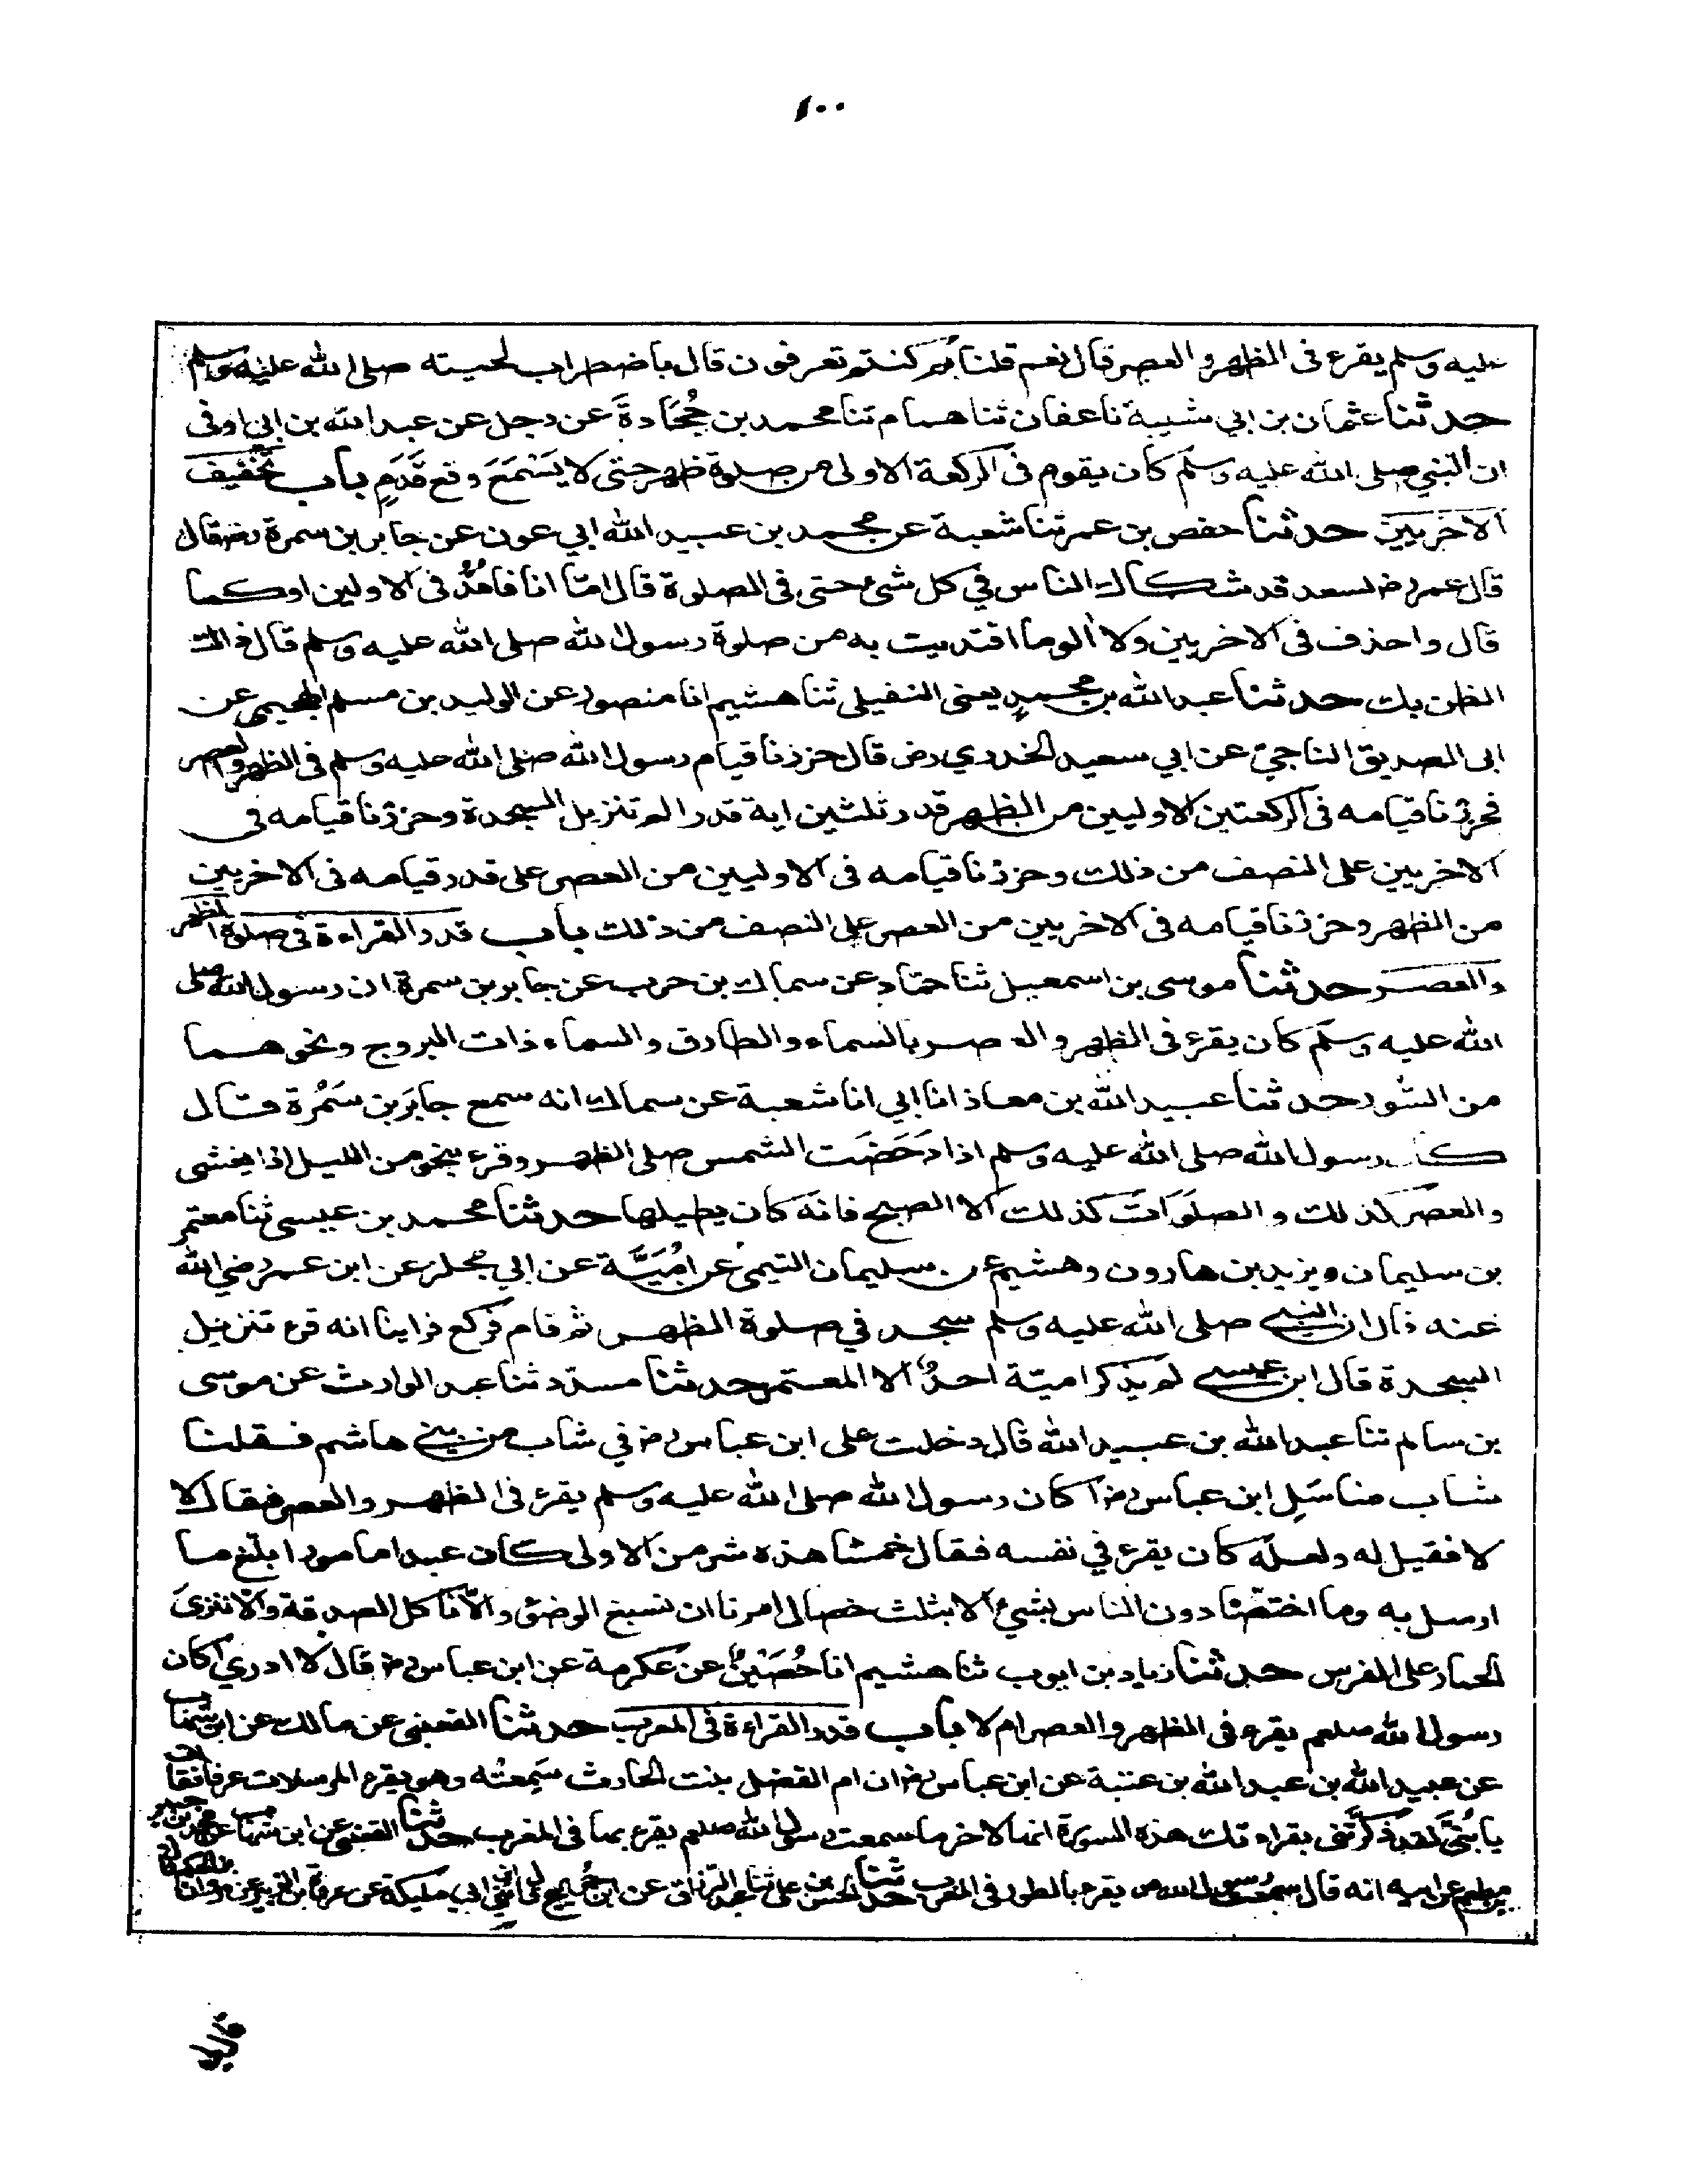 ١٠٠
عليه وسلم يقرء فى الظهر والعصر قال نعم قلنا بم كنتم تعرفون قال باضطراب لحيته صلى الله عليه وسلم
حدثنا عثمان بن ابي شيبة نا عفان ثنا همام ثنا محمد بن جُحَادةَ عن رجل عن عبد الله بن ابي اوفى
ان النبي صلى الله عليه وسلم كان يقوم فى الركعة الاولى من صلوة ظهر حتى لا يَسْمَعَ وقع قَدَمٍ باب تخفيف
الاخريين حدثنا حفص بن عمر ثنا شعبة عن محمد بن عبيد الله ابي عون عن جابر بن سمرة رض قال
قال عمر رض لسعد قد شكاك الناس في كل شئ حتى فى الصلوة قال امّا انا فامُدُّ فى الاولين او كما
قال واحذف فى الاخريين ولا ألو ما اقتديت به من صلوة رسول الله صلى الله عليه وسلم قال ذاك
الظن بك حدثنا عبد الله بن محمدٍ يعنى النفيلى ثنا هشيم انا منصور عن الوليد بن مسلم الهجيمى عن
ابى الصديق الناجيّ عن ابي سعيد الخدري رض قال حزرنا قيام رسول الله صلى الله عليه وسلم فى الظهر والعصر
فحزرنا قيامه فى الركعتين الاوليين من الظهر قدر ثلثين اية قدر الم تنزيل السجدة وحزرنا قيامه فى
الاخريين على النصف من ذلك وحزرنا قيامه فى الاوليين من العصر على قدر قيامه فى الاخريين
من الظهر وحزرنا قيامه فى الاخريين من العصر على النصف من ذلك باب قدر القراءة في صلوة الظهر
والعصر حدثنا موسى بن اسمعيل ثنا حمّاد عن سماك بن حرب عن جابر بن سمرة ان رسول الله صلى
الله عليه وسلم كان يقرء فى الظهر والعصر بالسماء والطارق والسماء ذات البروج ونحوهما
من السُّور حدثنا عبيد الله بن معاذ انا ابي انا شعبة عن سماك انه سمع جابَر بن سَمُرة قال
كان رسول الله صلى الله عليه وسلم اذا دَحَضَت الشمس صلى الظهر وقرء بنحو من الليل اذا يغشى
والعصَر كذلك والصلَوَات كذلك الا الصبح فانه كان يطيلها حدثنا محمد بن عيسى ثنا معتمر
بن سليمان ويزيد بن هارون وهشيم عن سليمان التيمى عن اُمَيَّة عن ابي مجلز عن ابن عمر رضي الله
عنه قال ان النبي صلى الله عليه وسلم سجد في صلوة الظهر ثم قام فركع فراينا انه قرء تنزيل
السجدة قال ابن عيسى لم يذكر امية احدٌ الا المعتمر حدثنا مسدد ثنا عبد الوارث عن موسى
بن سالم ثنا عبد الله بن عبيد الله قال دخلت على ابن عباس رض في شاب من بني هاشم فقلنا
شاب منا سَلِ ابن عباس رض أكان رسول الله صلى الله عليه وسلم يقرء فى الظهر والعصر فقال لا
لا فقيل له ولعلّه كان يقرء في نفسه فقال خمشا هذه شر من الاولى كان عبدا مامورا بلّغ ما
ارسل به وما اختصّنا دون الناس بشيء الا بثلث خصال امرنا ان نسبغ الوضؤ والّا ناكل الصدقة والّا ننزىَ
الحمار على الفرس حدثنا زياد بن ايوب ثنا هشيم انا حُصَيْنٌ عن عكرمة عن ابن عباس رض قال لا ادري أكان
رسول الله صلعم يقرء فى الظهر والعصر ام لا باب قدر القراءة فى المغرب حدثنا القعنبى عن مالك عن ابن شهاب
عن عبيد الله بن عبد الله بن عتبة عن ابن عباس رض ان ام الفضل بنت الحارث سَمِعتْه وهو يقرء المرسلات عرفا فقالت
يا بُنَيَّ لقد ذَكَّرتَنى بقراءتك هذه السورة انها لاخر ما سمعت رسول الله صلعم يقرء بها فى المغرب حدثنا القعنبى عن ابن شهاب عن محمد بن جبير
بن مطعم عن ابيه انه قال سمعت رسول الله ص يقرء بالطور فى المغرب حدثنا الحسن بن على ثنا عبد الرزاق عن ابن جُريج ابن ابي مليكة عن عروة بن الزبير عن مروان بن الحكم قال